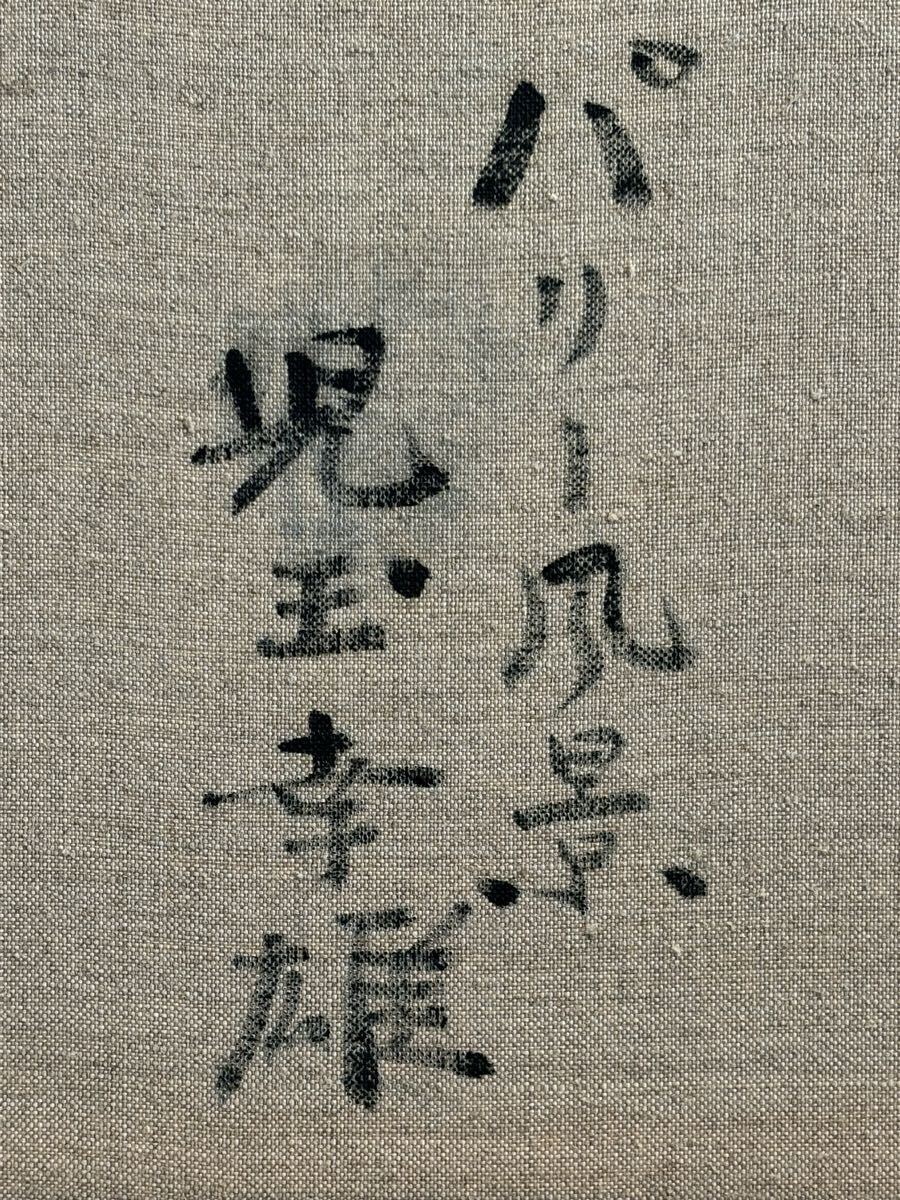 パリー風景
児玉幸雄